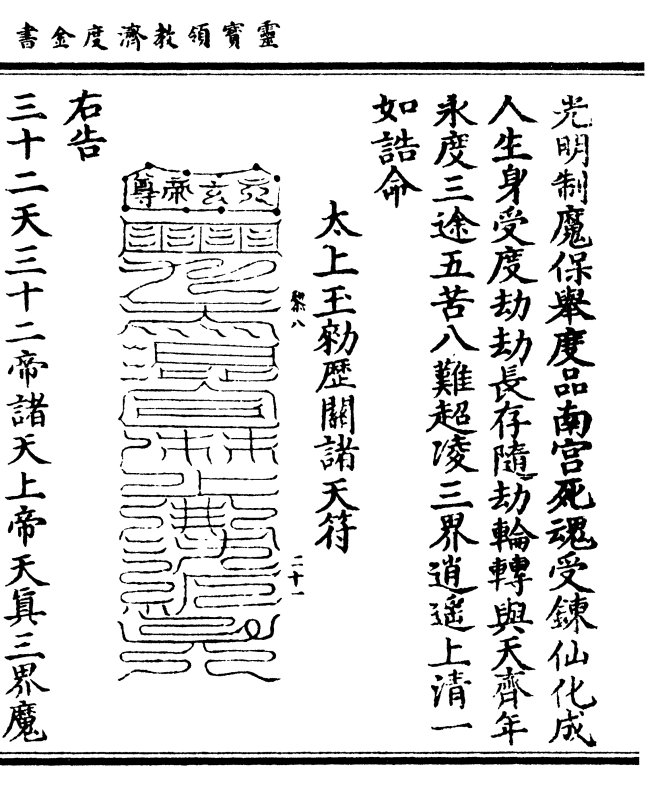 靈寶領教濟度金書
光明制魔保舉度品南宮死魂受鍊仙化成
人生身受度劫劫長存隨劫輪轉與天齊年
永度三途五苦八難超凌三界逍遙上清一
如誥命
太上玉勑歷關諸天符
二十一
右告
三十二天三十二帝諸天上帝天真三界魔